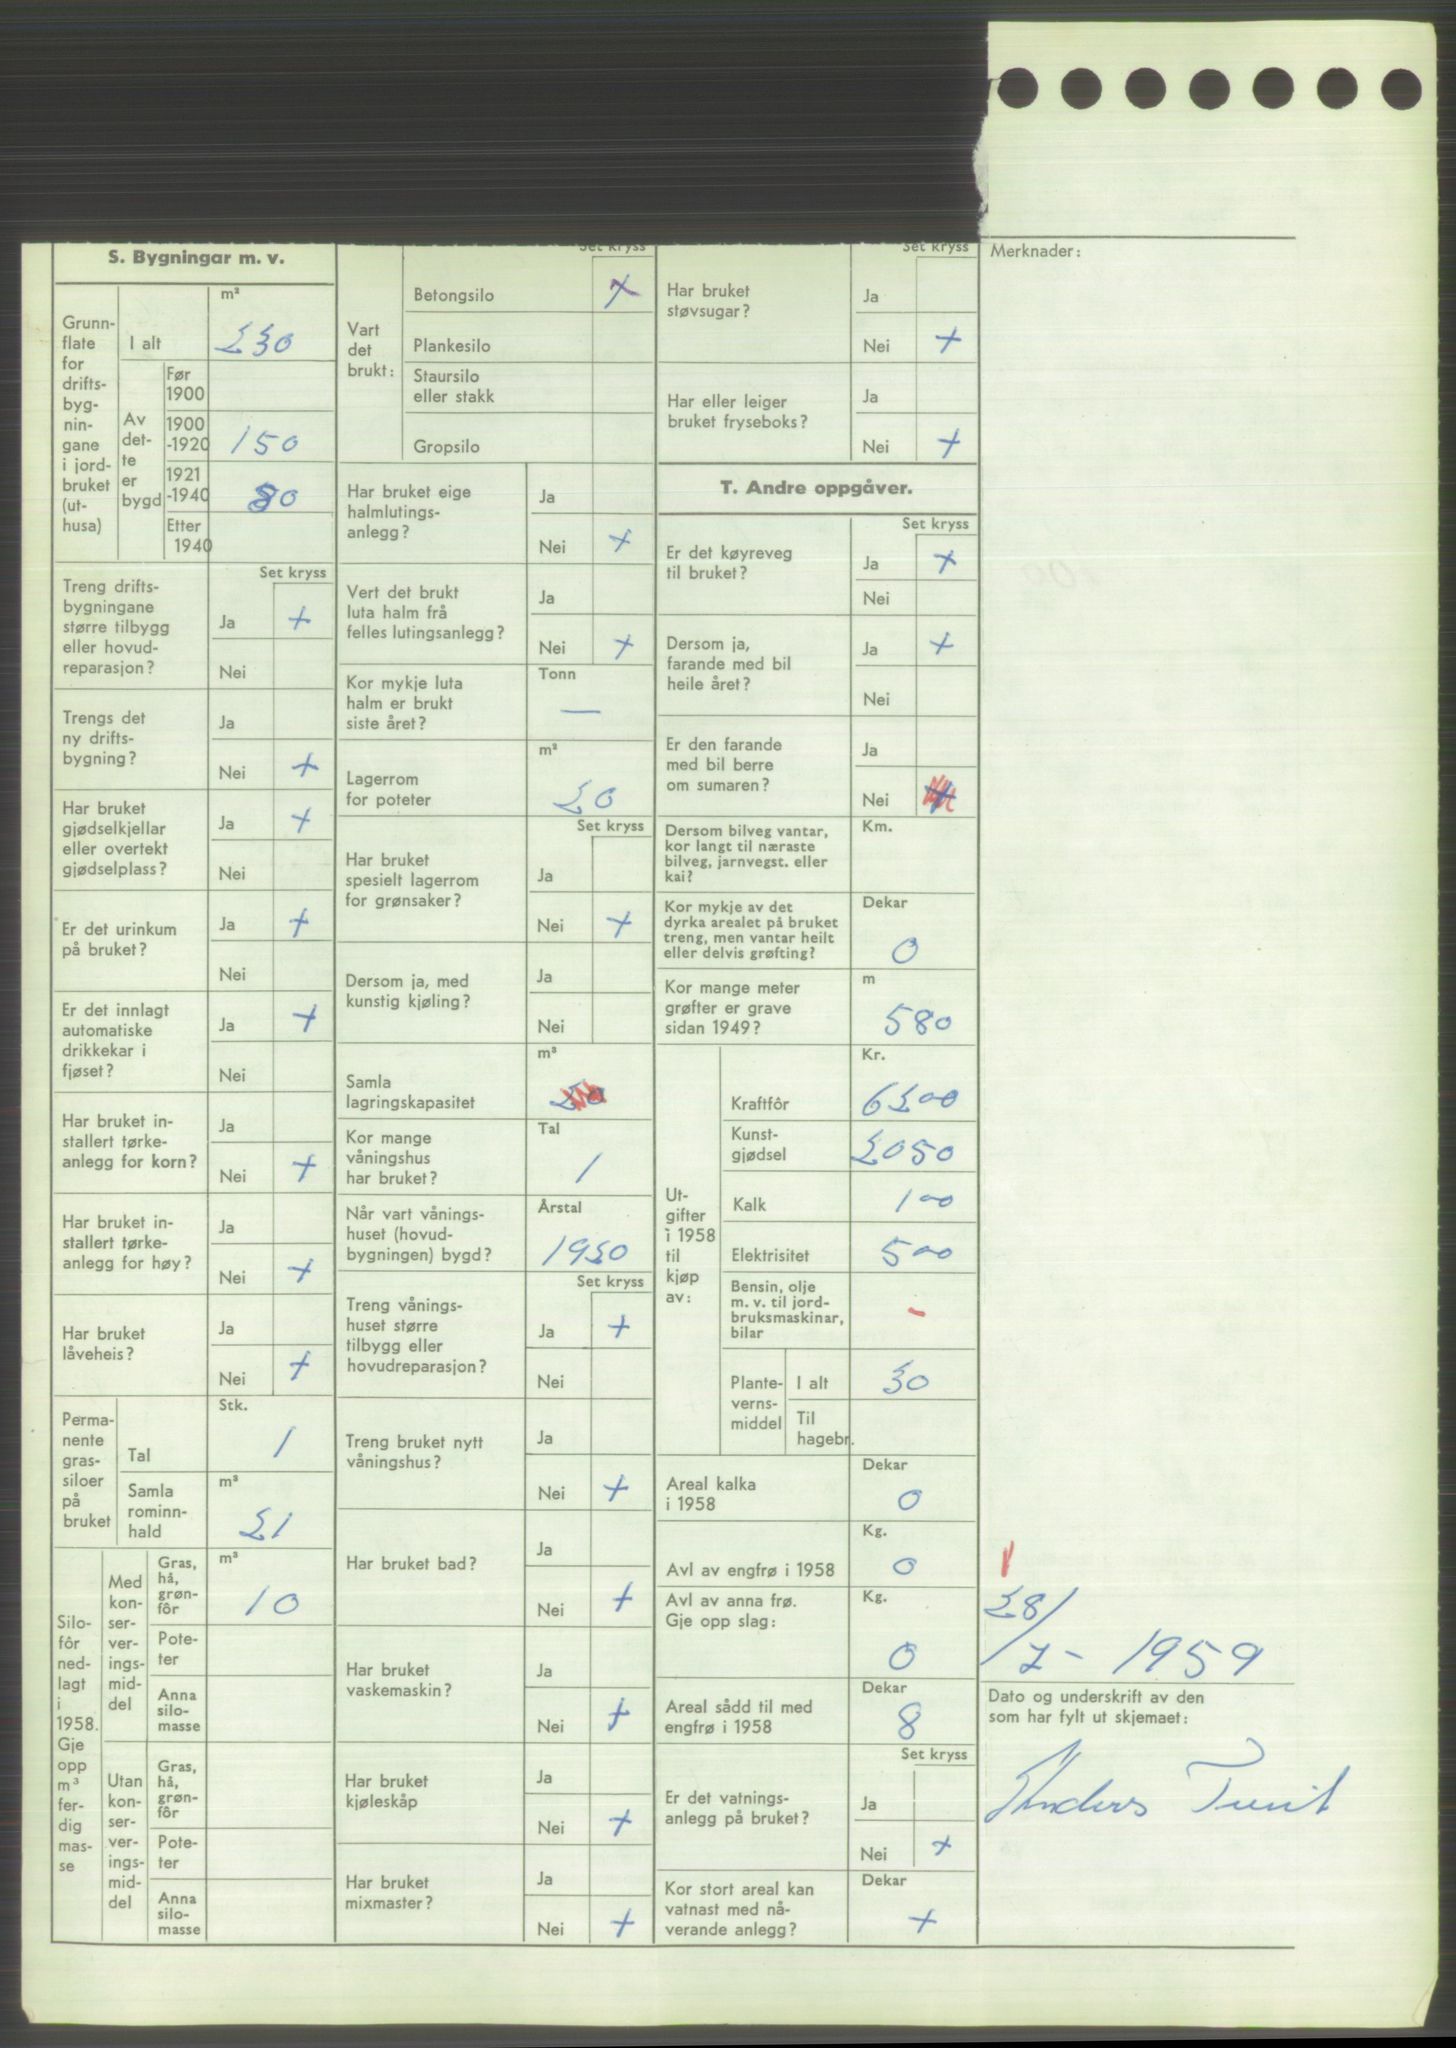 S. Bygningar m. v.
Grunn-
flate
for
drifts-
byg-
nin-
gane
i jord-
bruket
(ut-
husa)
m²
I alt 230
Av
det-
te
er
bygd
Før
1900
1900
-1920 150
1921
-1940 80
Etter
1940
Set kryss
Treng drifts-
bygningane
større tilbygg
eller hovud-
reparasjon?
Ja +
Nei
Trengs det
ny drifts-
bygning?
Ja
Nei +
Har bruket
gjødselkjellar
eller overtekt
gjødselplass?
Ja +
Nei
Er det urinkum
på bruket?
Ja +
Nei
Er det innlagt
automatiske
drikkekar i
fjøset?
Ja +
Nei
Har bruket in-
stallert tørke-
anlegg for korn?
Ja
Nei +
Har bruket in-
stallert tørke-
anlegg for høy?
Ja
Nei +
Har bruket
låveheis?
Ja
Nei +
Perma-
nente
gras-
siloer
på
bruket
Stk.
Tal 1
Samla
rominn-
hald
m³
21
Silo-
fôr
ned-
lagt
i
1958.
Gje
opp
m³
fer-
dig
mas-
se
Med
kon-
ser-
ver-
ings-
mid-
del
Gras,
hå,
grøn-
fôr
m³
10
Pote-
ter
Anna
silo-
masse
Utan
kon-
ser-
ver-
ings-
mid-
del
Gras,
hå,
grøn-
fôr
Pote-
ter
Anna
silo-
masse
Set kryss
Vart
det
brukt:
Betongsilo +
Plankesilo
Staursilo
eller stakk
Gropsilo
Har bruket eige
halmlutings-
anlegg?
Ja
Nei +
Vert det brukt
luta halm frå
felles lutingsanlegg?
Ja
Nei +
Kor mykje luta
halm er brukt
siste året?
Tonn
—
Lagerrom
for poteter
m²
20
Set kryss
Har bruket
spesielt lagerrom
for grønsaker?
Ja
Nei +
Dersom ja, med
kunstig kjøling?
Ja
Nei
Samla
lagringskapasitet
m³
20
Kor mange
våningshus
har bruket?
Tal
1
Når vart vånings-
huset (hovud-
bygningen) bygd?
Årstal
1920
Set kryss
Treng vånings-
huset større
tilbygg eller
hovudreparasjon?
Ja +
Nei
Treng bruket nytt
våningshus?
Ja
Nei +
Har bruket bad?
Ja
Nei +
Har bruket
vaskemaskin?
Ja
Nei +
Har bruket
kjøleskåp
Ja
Nei +
Har bruket
mixmaster?
Ja
Nei +
Set kryss
Har bruket
støvsugar?
Ja
Nei +
Har eller leiger
bruket fryseboks?
Ja
Nei +
T. Andre oppgåver.
Set kryss
Er det køyreveg
til bruket?
Ja +
Nei
Dersom ja,
farande med bil
heile året?
Ja +
Nei
Er den farande
med bil berre
om sumaren?
Ja
Nei +
Dersom bilveg vantar,
kor langt til næraste
bilveg, jarnvegst. eller
kai?
Km.
Kor mykje av det
dyrka arealet på bruket
treng, men vantar heilt
eller delvis grøfting?
Dekar
0
Kor mange meter
grøfter er grave
sidan 1949?
m
580
Ut-
gifter
i 1958
til
kjøp
av:
Kr.
Kraftfôr 6200
Kunst-
gjødsel 2050
Kalk 100
Elektrisitet 500
Bensin, olje
m. v. til jord-
bruksmaskinar,
bilar
-
Plante-
verns-
middel
I alt 30
Til
hagebr.
Areal kalka
i 1958
Dekar
0
Avl av engfrø i 1958
Kg.
0
Avl av anna frø.
Gje opp slag:
Kg.
0
Areal sådd til med
engfrø i 1958
Dekar
8
Set kryss
Er det vatnings-
anlegg på bruket?
Ja
Nei +
Kor stort areal kan
vatnast med nå-
verande anlegg?
Dekar
+
Merknader:
28/
/7 - 1959
Dato og underskrift av den
som har fylt ut skjemaet:
Anders